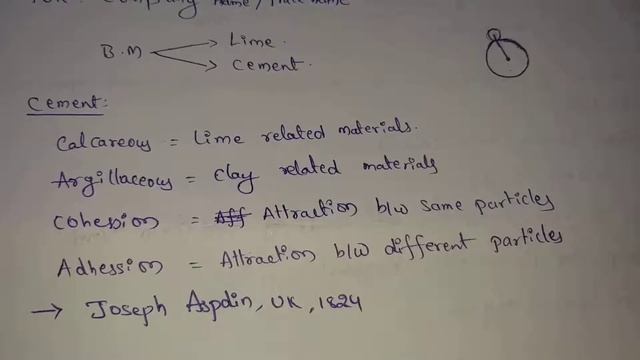 Company name / Trade name
B.M → Lime.
→ Cement.
Cement:
Calcareous = Lime related materials.
Argillaceous = Clay related materials
Cohession = Aff Attraction b/w same particles
Adhession = Attraction b/w different particles
→ Joseph Aspdin, UK, 1824